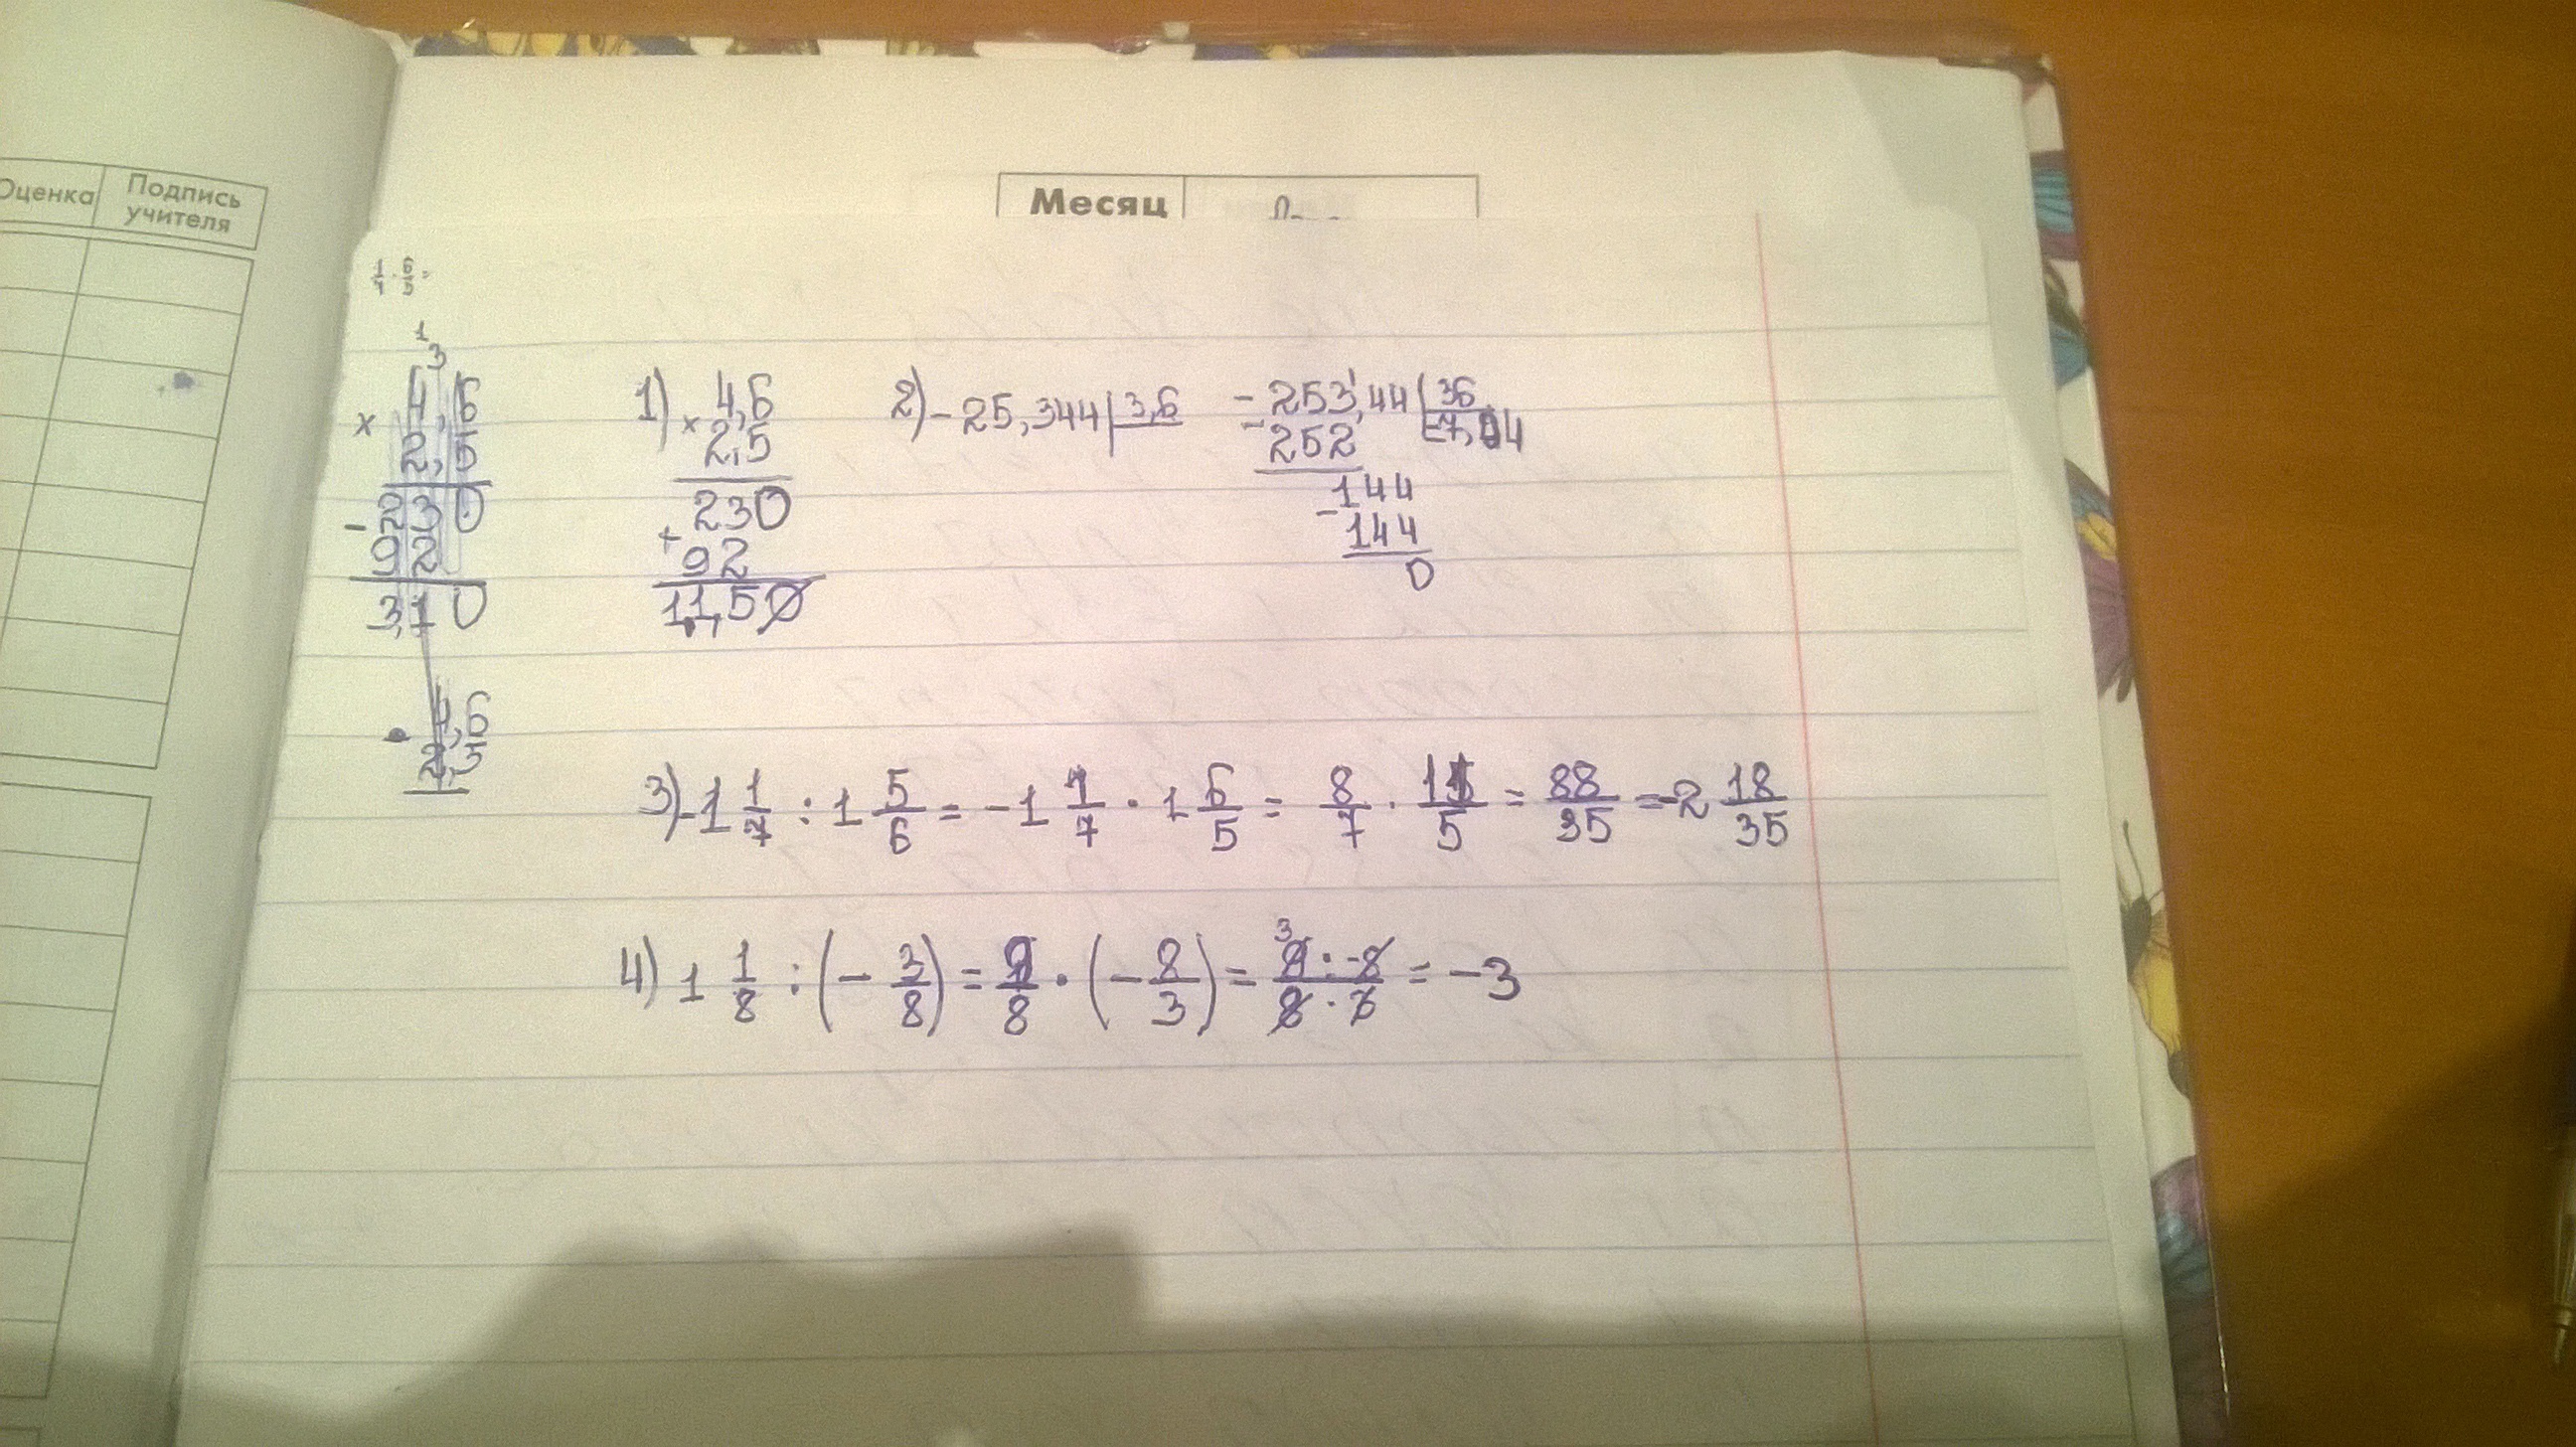 Оценка
Подпись
учителя
Месяц
1
3
4,6
× 2,5
230
- 92
3,10
4,6
2,5
1) × 4,6
2,5
230
+ 92
11,50
2) - 25,344 | 3,6
- 253,44 | 36
- 252 | -7,04
144
- 144
0
3) -1 1/7 : 1 5/6 = -1 1/7 · 1 6/5 = 8/7 · 11/5 = 88/35 = -2 18/35
4) 1 1/8 : (- 3/8) = 9/8 · (- 8/3) = 9 · -8 / 8 · 3 = -3